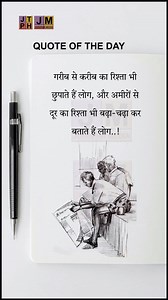 JT JM
PH
QUOTE OF THE DAY
गरीब से करीब का रिश्ता भी
छुपाते हैं लोग, और अमीरों से
दूर का रिश्ता भी बड़ा-चढ़ा कर
बताते हैं लोग..!